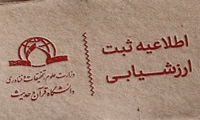 اطلاعیه ثبت
ارزشیابی
وزارت علوم تحقیقات و فناوری
دانشگاه قرآن و حدیث